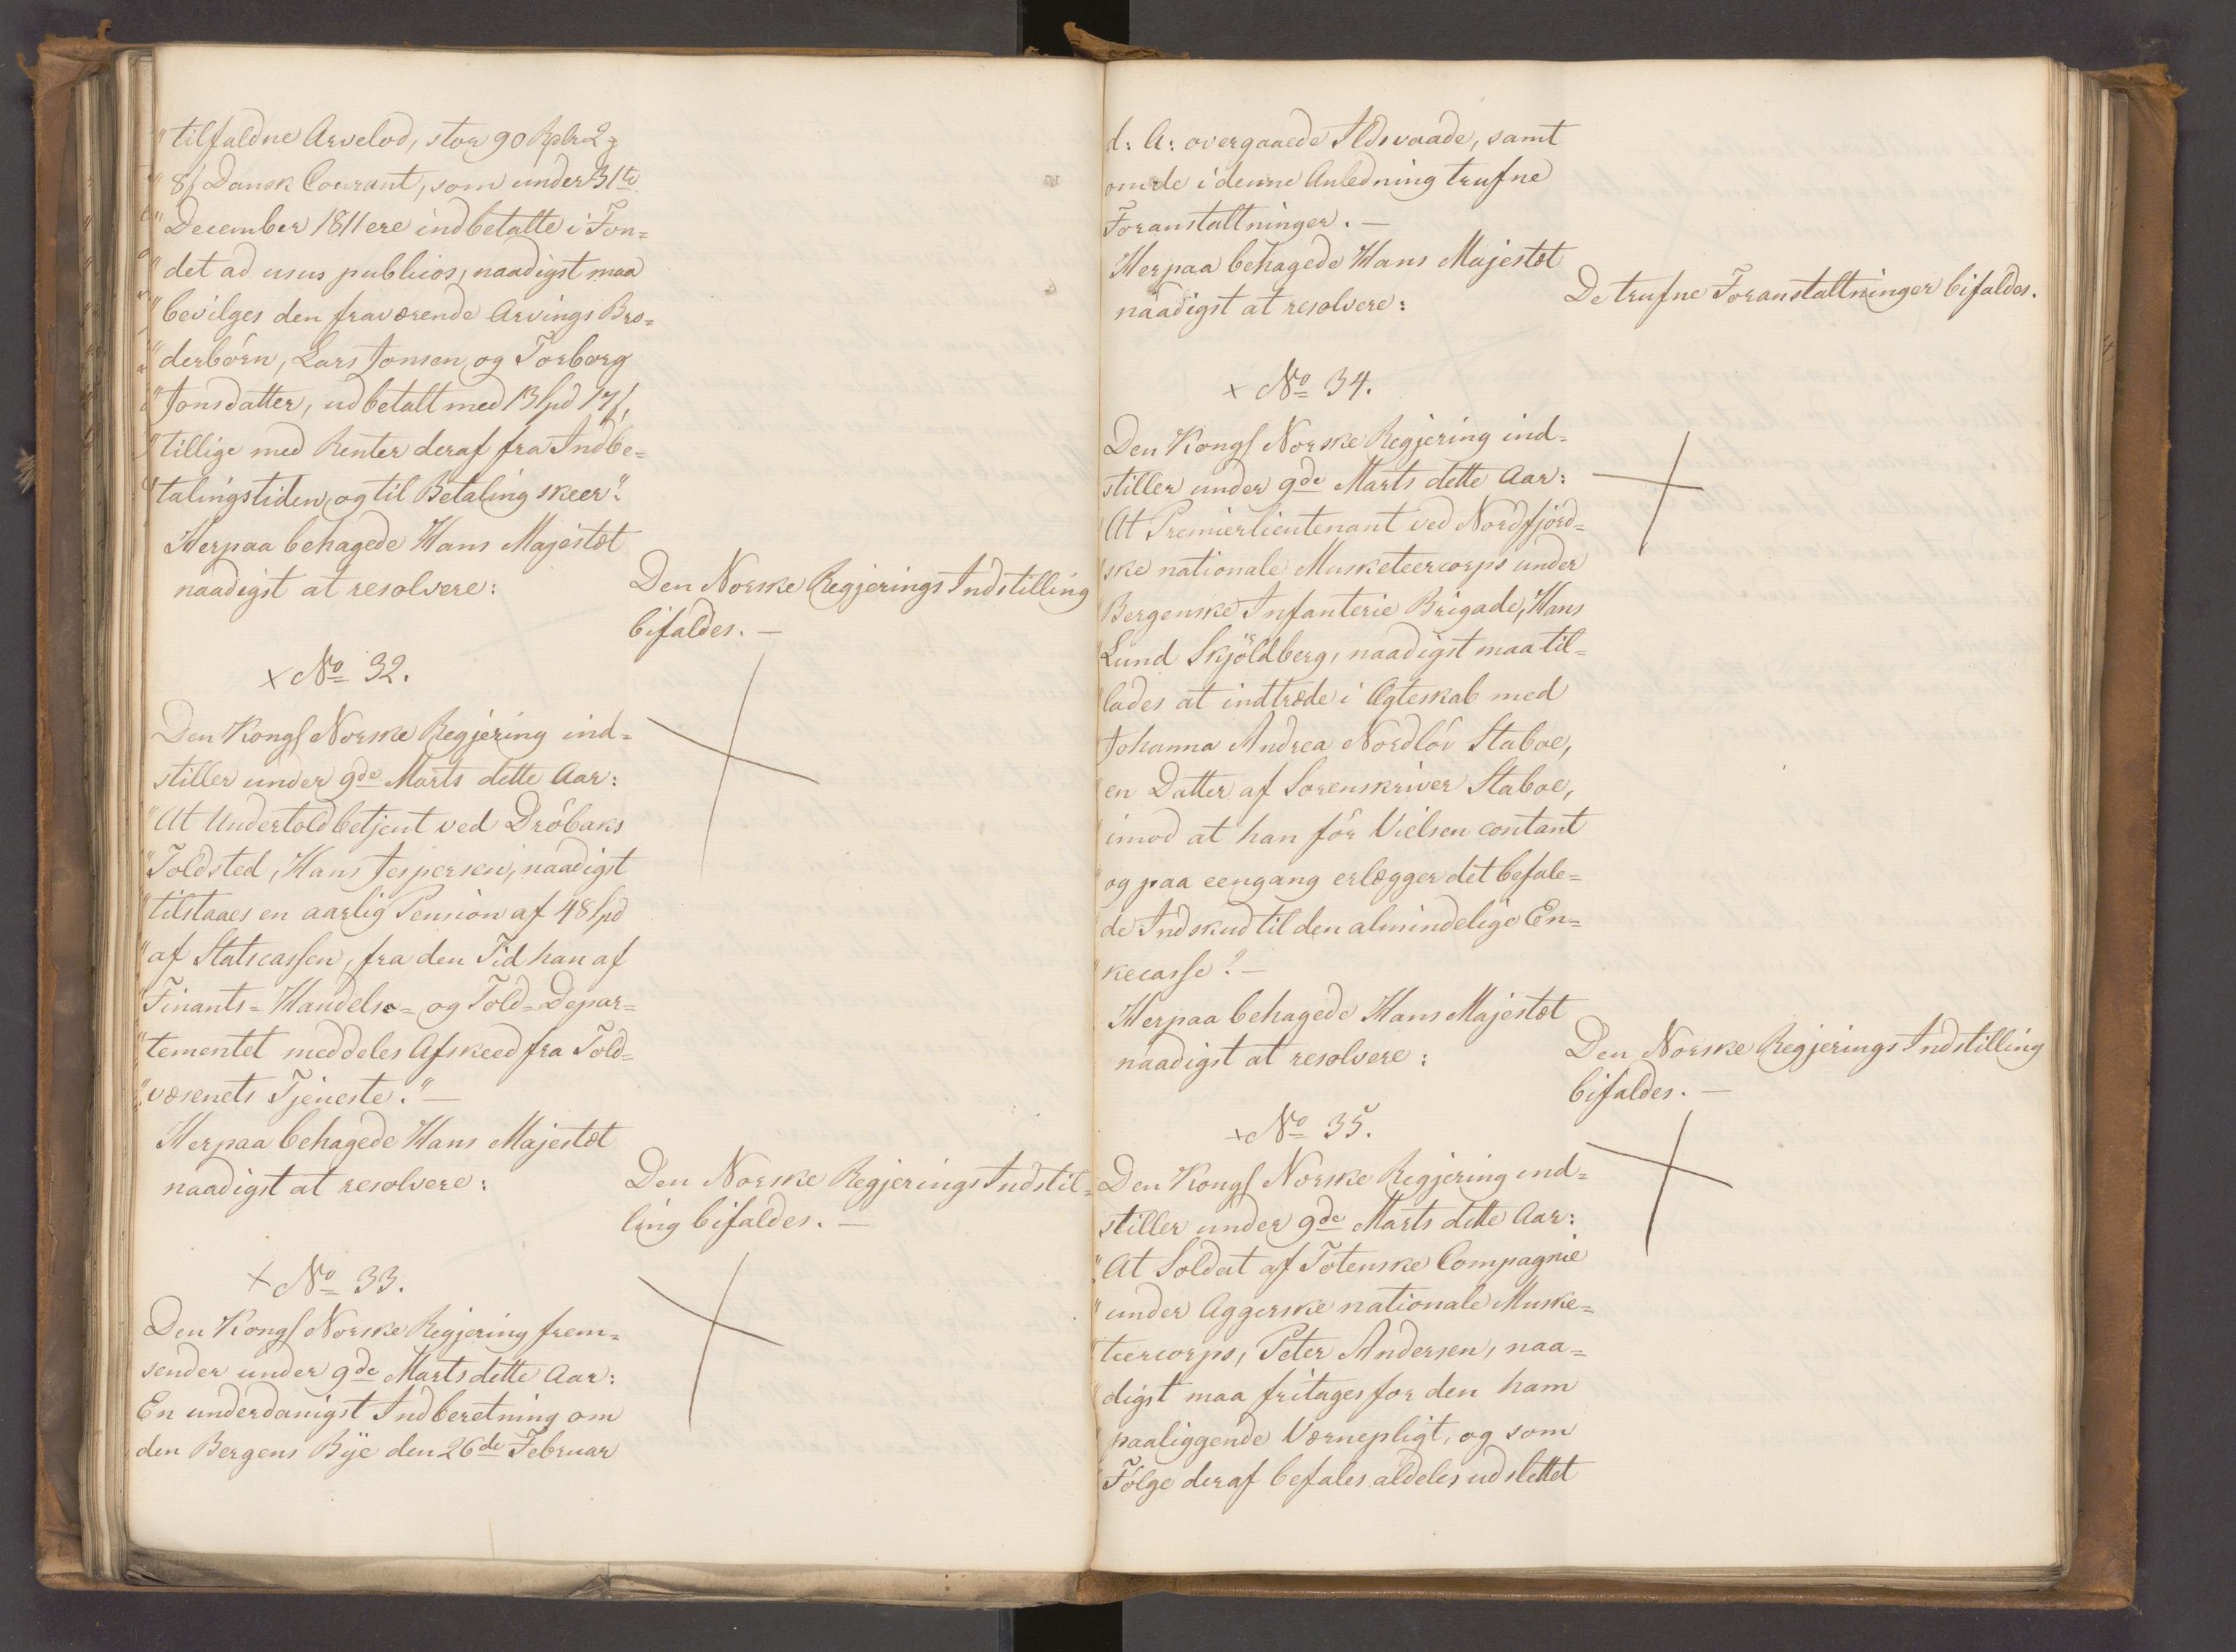 "tilfaldne Arvelod, stor 90 Rdlr 2 ℥
"8 ß Dansk Courant, som under 31te
"December 1811 ere indbetalte i Fon=
"det ad usus publicos, naadigst maa
"bevilges den fraværende Arvings Bro=
"derbörn, Lars Jonsen og Torborg
"Jonsdatter, udbetalt med 13 spd 17 ß,
"tillige med Renter deraf fra Indbe=
"talingstiden og til Betaling skeer".
Herpaa behagede Hans Majestæt
naadigst at resolvere:
Den Norske Regjerings Indstilling
bifaldes. —
x No 32.
Den Kongl Norske Regjering ind=
stiller under 9de Marts dette Aar:
"At Undertoldbetjent ved Dröbaks
"Toldsted, Hans Jespersen, naadigst
"tilstaaes en aarlig Pension af 48 spd
"af Statscassen, fra den Tid han af
"Finants= Handels= og Told=Depar=
"tementet meddeles Afskeed fra Told=
"væsenets Tjeneste." —
Herpaa behagede Hans Majestæt
naadigst at resolvere:
Den Norske Regjerings Indstil=
ling bifaldes. —
x No 33.
Den Kongl Norske Regjering frem=
sender under 9de Marts dette Aar:
En underdanigst Indberetning om
den Bergens Bÿe den 26de Februar
d: A: overgaaede Ildsvaade, samt
om de i denne Anledning trufne
Foranstaltninger. —
Herpaa behagede Hans Majestæt
naadigst at resolvere:
De trufne Foranstaltninger bifaldes.
x No 34.
Den Kongl Norske Regjering ind=
stiller under 9de Marts dette Aar:
"At Premierlieutenant ved Nordfjord=
"ske nationale Musketeercorps under
"Bergenske Infanterie Brigade, Hans
"Lund Skjöldberg, naadigst maa til=
"lades at indtræde i Ægteskab med
"Johanna Andrea Nordlöv Staboe,
"en Datter af Sorenskriver Staboe,
"imod at han för Vielsen contant
"og paa eengang erlægger det befale=
"de Indskud til den almindelige En=
"kecasse". —
Herpaa behagede Hans Majestæt
naadigst at resolvere:
Den Norske Regjerings Indstilling
bifaldes. —
x No 35.
Den Kongl Norske Regjering ind=
stiller under 9de Marts dette Aar:
"At Soldat af Totenske Compagnie
"under Aggerske nationale Muske=
"teercorps, Peter Andersen, naa=
"digst maa fritages for den ham
"paaliggende Værnepligt, og som
"Fölge deraf befales aldeles udslettet